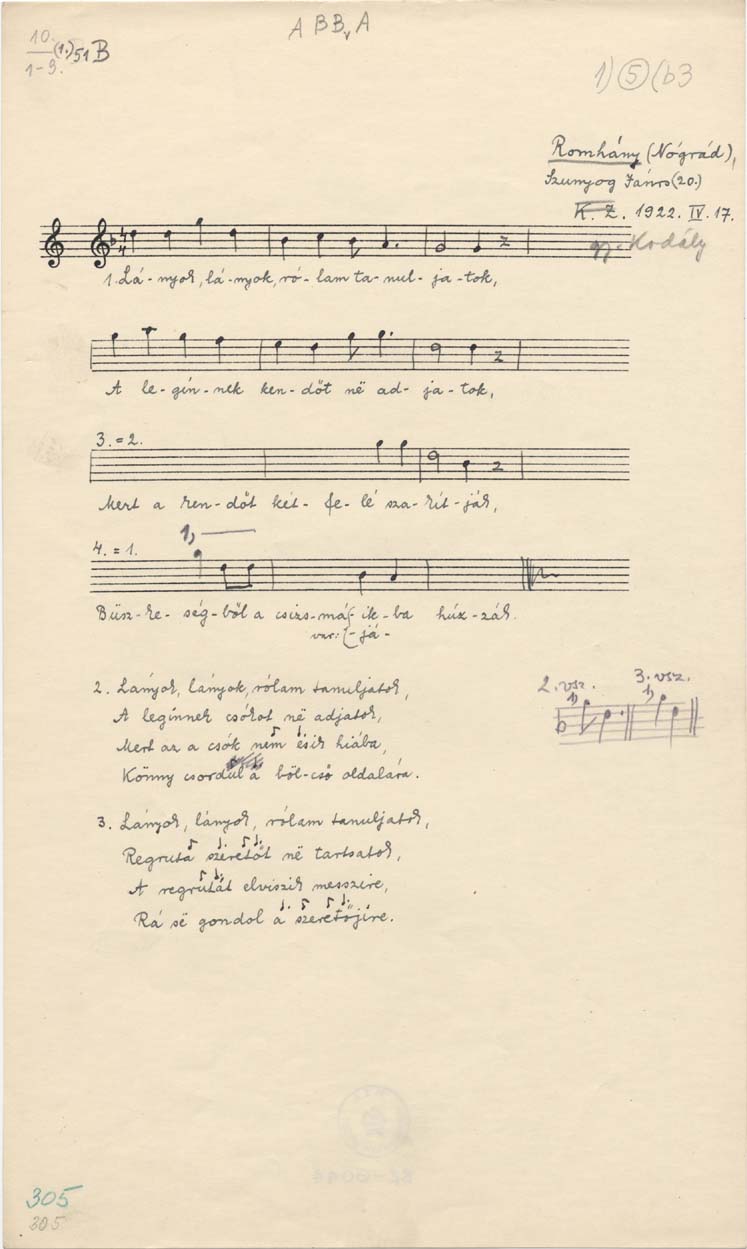 A B Bv A
10.
1-9. (1.) 51 B
1) 5 (b3
Romhány (Nógrád),
Szunyog János (20.)
K. Z. 1922. IV. 17.
gy. Kodály
1. Lá-nyok, lá-nyok, ró-lam ta-nul-ja-tok,
A le-gin-nek ken-dőt në ad-ja-tok,
3. = 2.
Mert a ken-dőt két-fe-lé sza-kít-ják,
4. = 1.
1,
Büsz-ke-ség-ből a csizs-má(-ik-ba húz-zák.
var: (-já-
2. Lanyok, lányok, rólam tanuljatok,
A leginnek csókot në adjatok,
Mert az a csók nem ésik hiába,
Könny csordul a böl-cső oldalára.
2. vsz. 3. vsz.
1) 1)
3. Lányok, lányok, rólam tanuljatok,
Regruta szeretőt në tartsatok,
A regrutát elviszik messzire,
Rá së gondol a szeretőjire.
305
305